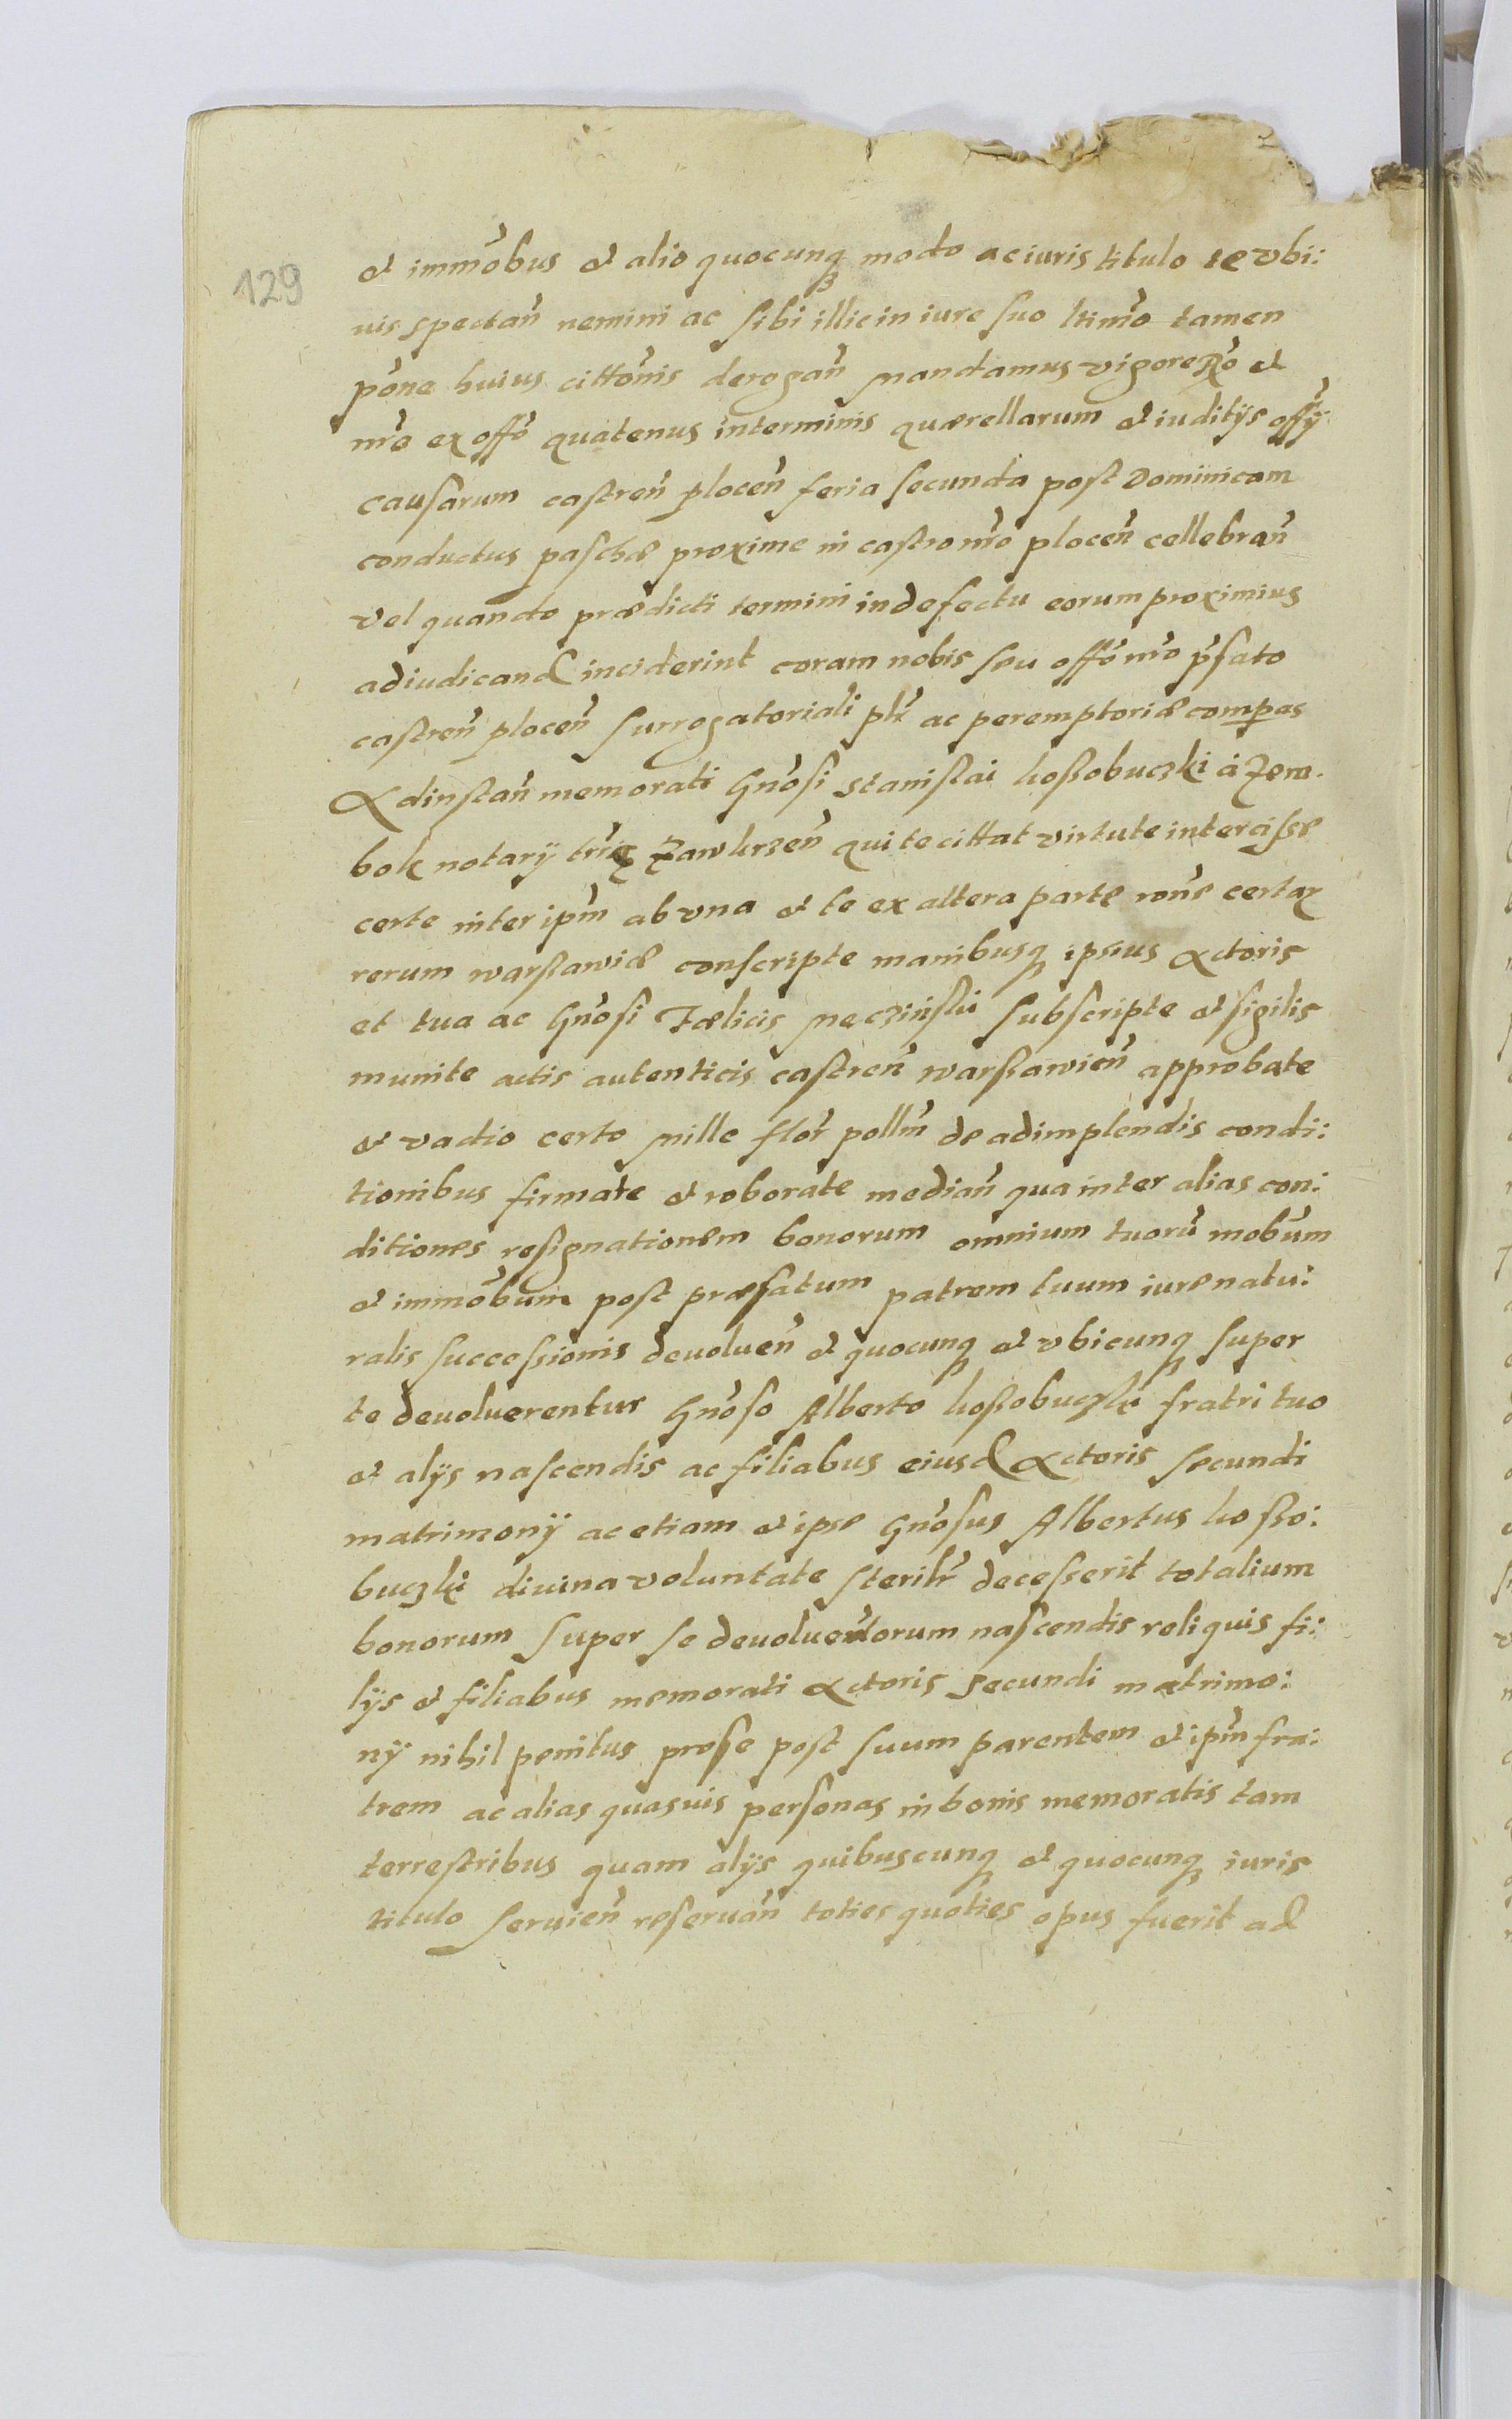 129
et immo͂bus et alio quocunq modo ac iuris titulo te vbi:
uis spectan̄ nemini ac sibi illic in iure suo ltimo͂ tamen
po͂ne huius citto͂nis derogan̄ mandamus vigore R͂o et
nr͂o ex offo͂ quatenus in terminis quærellarum et iuditÿs offÿ
causarum castren̄ plocen̄ feria secunda post Dominicam
conductus paschæ proxime in castro nr͂o plocen̄ cellebran̄
vel quando prædicti termini in defectu eorum proximius
adiudicand inciderint coram nobis seu offo͂ nr͂o p͂fato
castren̄ plocen̄ surrogatoriali plr͂ ac peremptoriæ compeas
Ad instan̄ memorati Gno͂si Stanislai kossobuczki à Zem.
bok notarÿ trr͂æ Zawkrzen̄ qui te cittat virtute intercissæ
certe inter ipm͂ ab vna et te ex altera parte ro͂ne certar
rerum warssawiæ conscripte manibusq ipsius Actoris
et tua ac Gno͂si Fælicis Meczinski subscripte et sigilis
munite actis autenticis castren̄ warssawien̄ approbate
et vadio certo Mille flor͂ pollm͂ de adimplendis condi:
tionibus firmate et roborate median̄ qua inter alias con:
ditiones resignationem bonorum omnium tuorū mobu͂m
et immo͂bum post præfatum patrem tuum iure natu:
ralis successionis deuoluen̄ et quocunq et vbicunq super
te deuoluerentur Gno͂so Alberto kossobuczki fratri tuo
et alÿs nascendis ac filiabus eiusd Actoris secundi
matrimonÿ ac etiam et ipse Gno͂sus Albertus kosso:
buczki diuina voluntate sterilr͂ decesserit totalium
bonorum super se deuoluentorum nascendis reliquis fi:
lÿs et filiabus memorati Actoris secundi matrimo:
nÿ nihil penitus pro se post suum parentem et ipm͂ fra:
trem ac alias quasuis personas in bonis memoratis tam
terrestribus quam alÿs quibuscunq et quocunq iuris
titulo seruien̄ reseruan̄ toties quoties opus fuerit ad